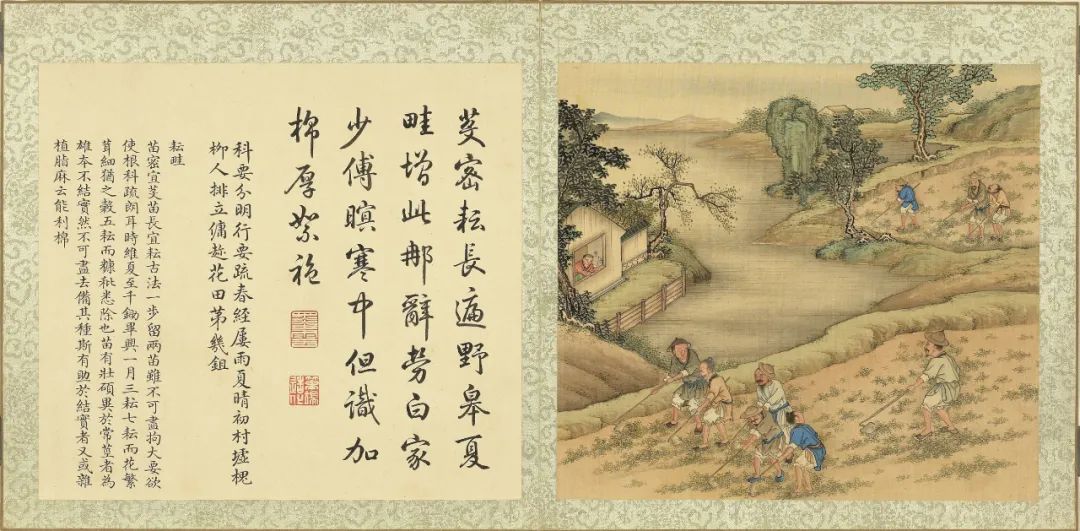 芟密耘長遍野皋夏
畦增此那辭勞白家
少傅暝寒中但識加
棉厚絮袍
科要分明行要疏春經屢雨夏晴初村墟槐
柳人排立傭趁花田第幾鉏
耘畦
苗密宜芟苗長宜耘古法一步留兩苗雖不可盡拘大要欲
使根科疏朗耳時維夏至千鋤畢興一月三耘七耘而花繁
茸細猶之穀五耘而糠秕悉除也苗有壯碩異於常莖者為
雄本不結實然不可盡去備其種斯有助於結實者又或雜
植脂麻云能利棉